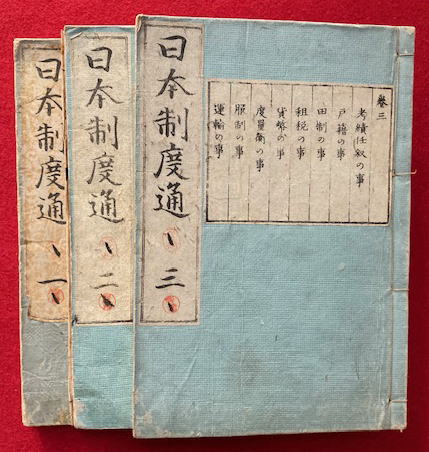 卷三
考績任叙の事
戸籍の事
田制の事
租税の事
貨幣の事
度量衡の事
服制の事
運輸の事
日本制度通 三
日本制度通 二
日本制度通 一